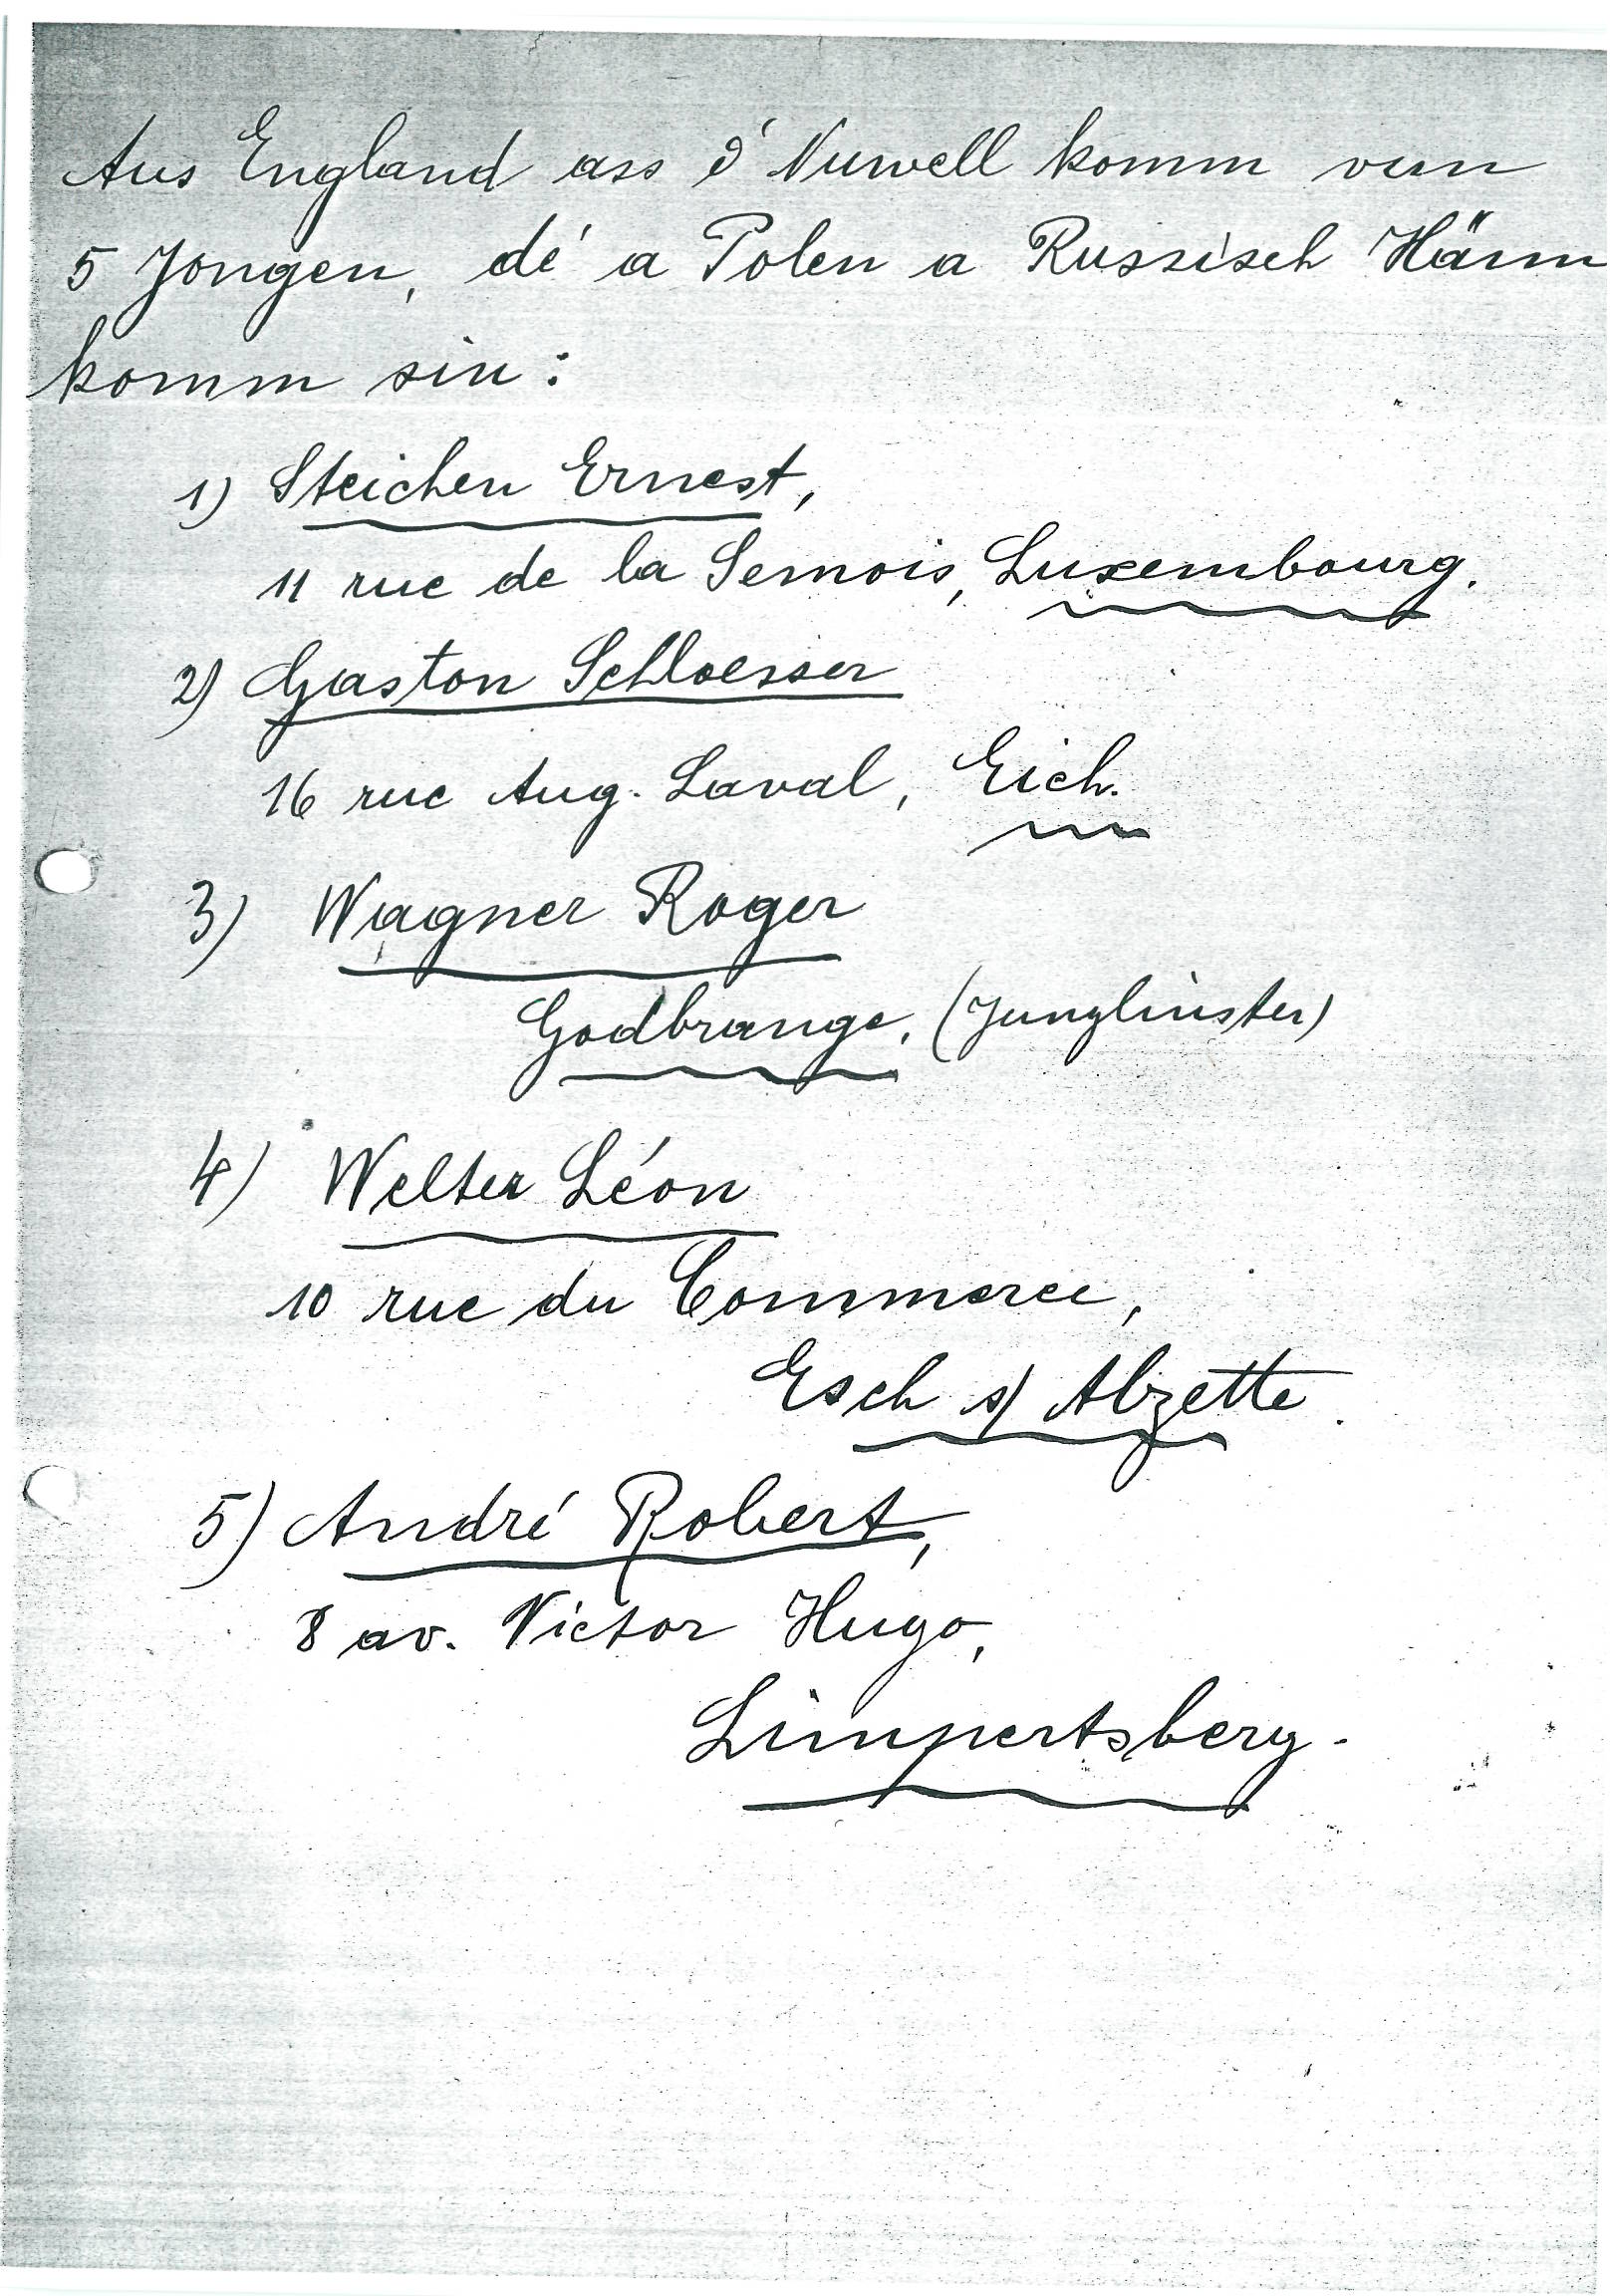 Aus England ass d' Nuwell komm vun
5 Jongen, dé a Polen a Russisch Hänn
komm sin:
1) Steichen Ernest,
11 rue de la Semois, Luxembourg.
2) Gaston Schloesser
16 rue Aug. Laval, Eich.
3) Wagner Roger
Godbrange, (Junglinster)
4) Welter Léon
10 rue du Commerce,
Esch s/ Alzette.
5) André Robert,
8 av. Victor Hugo,
Limpertsberg.